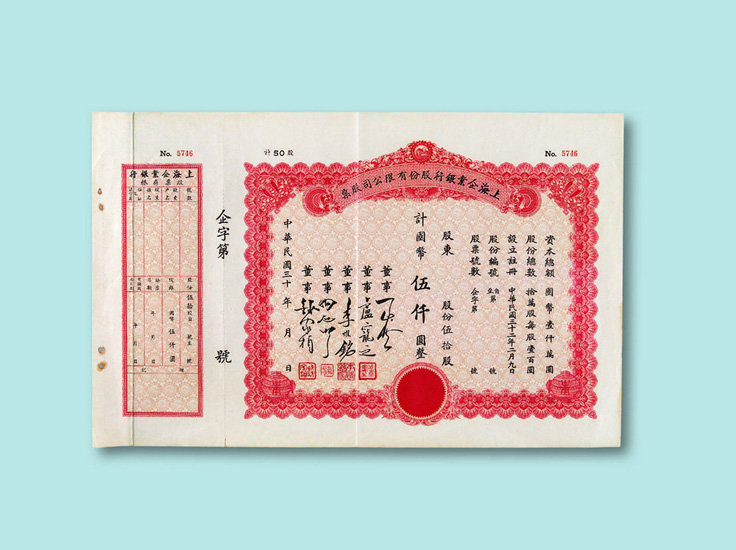 No. 5746
計 50 股
No. 5746
上海企業銀行股份有限公司股票
資本總額 國幣壹仟萬圓
股份總數 拾萬股每股壹百圓
設立註冊 中華民國三十三年二月九日
股份編號 自第 至 號
股票號數 企字第 號
股東
股份伍拾股
計國幣伍仟圓整
董事
董事 盧寵之
董事
董事
董事
中華民國三十 年 月 日
企字第 號
上海企業銀行
股票存根
伍拾股
國幣 伍仟圓
年 月 日